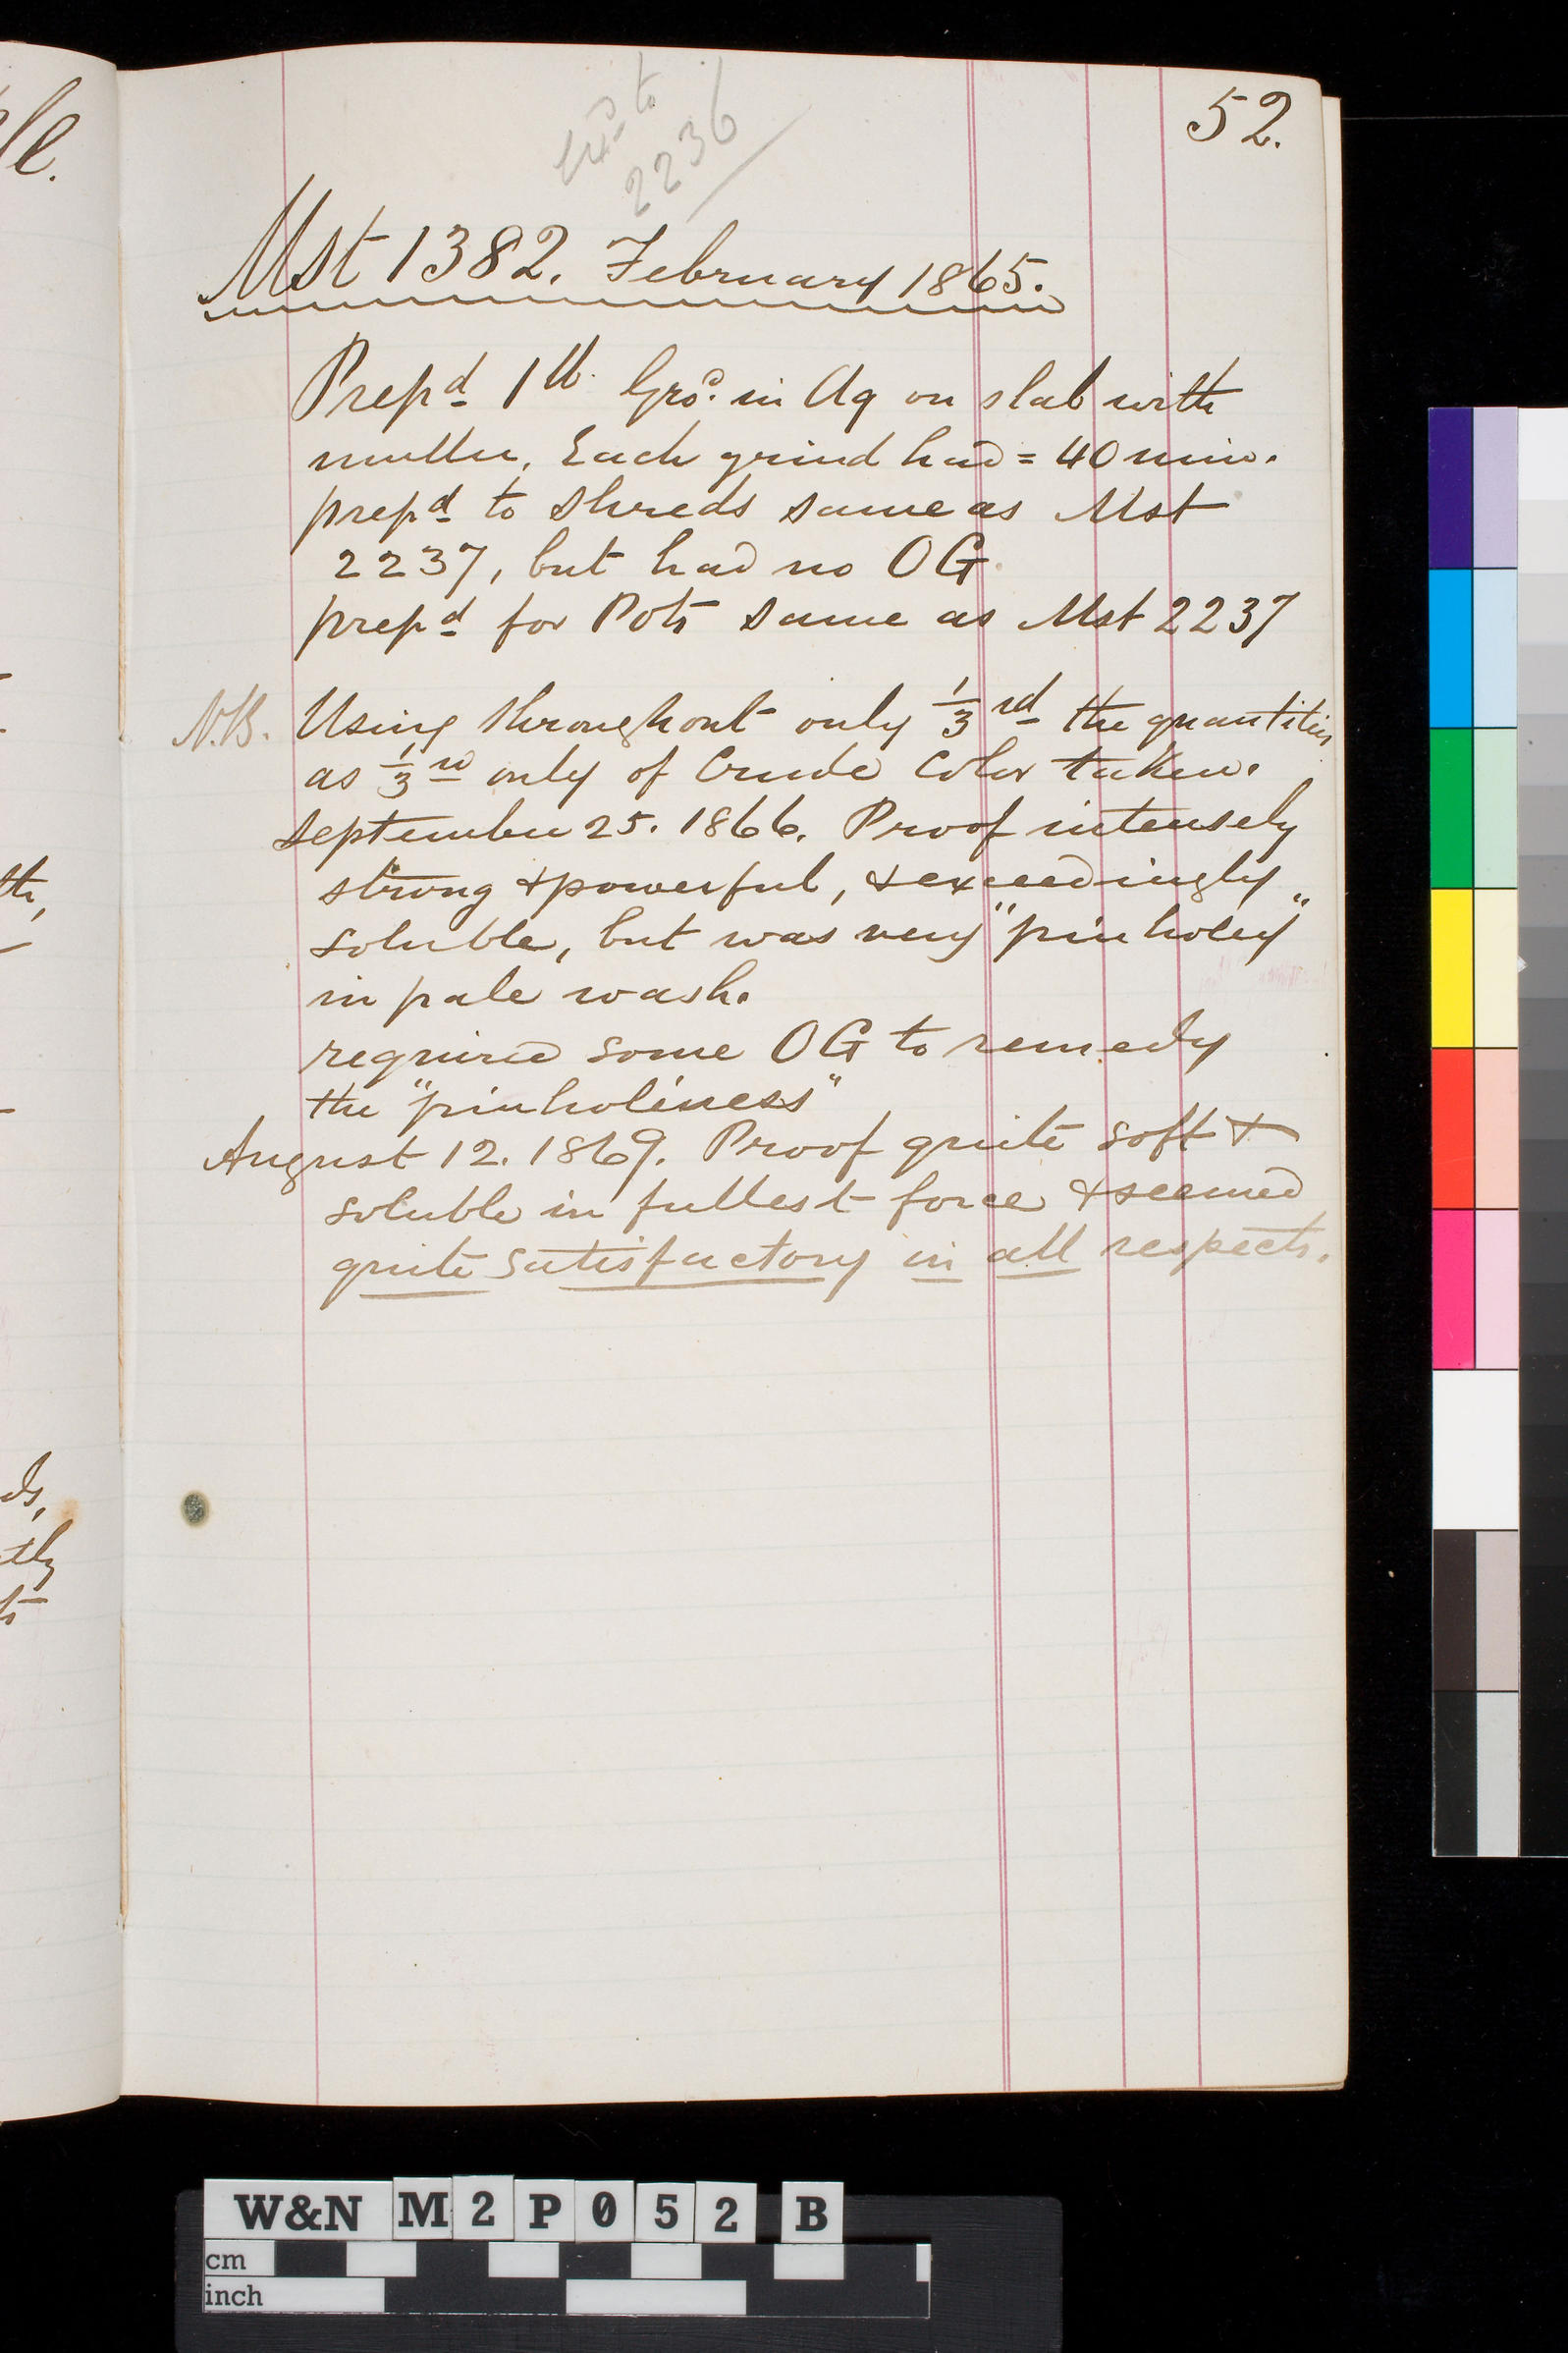 52.
Ex.d to
2236
Mst 1382. February 1865.
Prep.d 1 lb. Gro.d in Aq on slab with
muller. Each grind had = 40 min.
prep.d to shreds same as Mst
2237, but had no OG.
prep.d for Pots same as Mst 2237
N.B. Using throughout only 1/3 rd the quantities
as 1/3 rd only of Crude Color taken.
September 25. 1866. Proof intensely
strong & powerful, & exceedingly
soluble, but was very "pinholey"
in pale wash.
required some OG to remedy
the "pinholiness"
August 12. 1869. Proof quite soft &
soluble in fullest force & seemed
quite satisfactory in all respects.
le.
th,
ds,
tly
ts
W&N M2P052 B
cm
inch